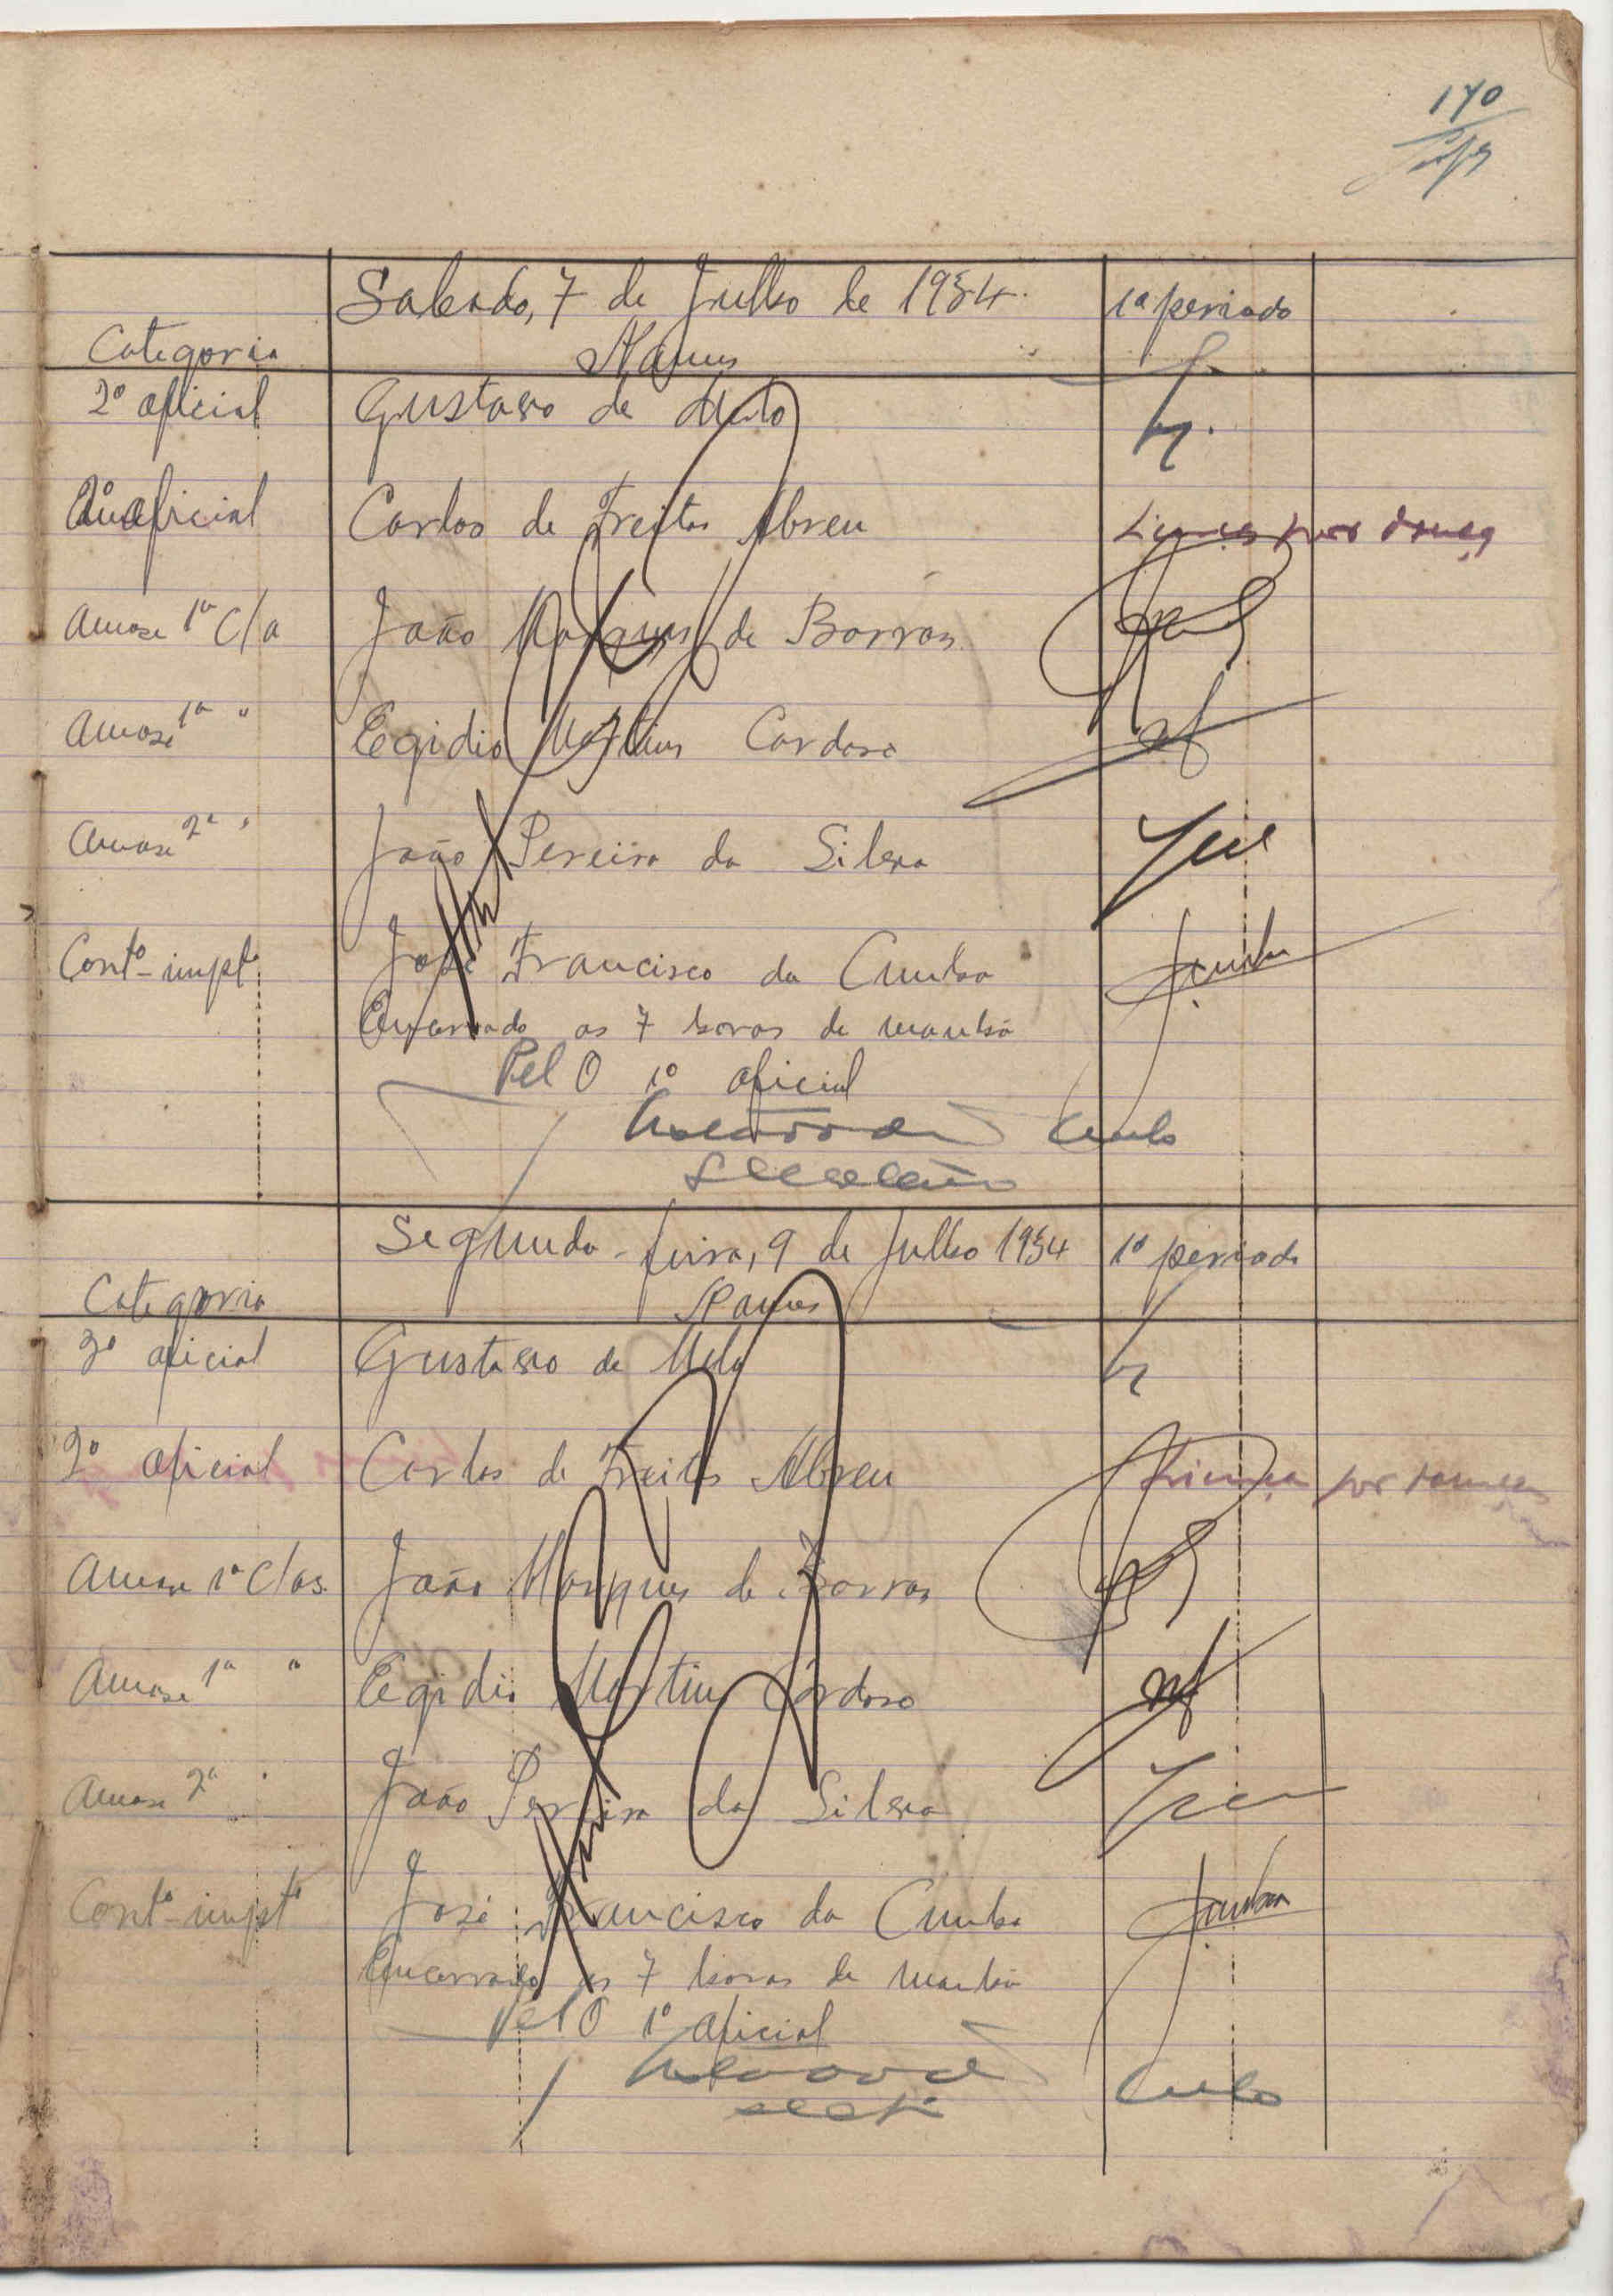 170
Sabado, 7 de Julho de 1934. 1º periodo
Categoria Nomes
2º oficial Gustavo de Melo
2º oficial Carlos de Freitas Abreu Licença por doença
1ª cla João Marques de Barros
1ª " Egidio Martins Cardoso
2ª " João Pereira da Silva
Contº-impt José Francisco da Cunha
Encerrado as 7 horas da manhã
Pel O 1º oficial
Segunda-feira, 9 de Julho 1934 1º periodo
Categoria Nomes
2º oficial Gustavo de Melo
2º oficial Carlos de Freitas Abreu Licença por doença
1ª clas. João Marques de Barros
1ª " Egidio Martins Cardoso
2ª " João Pereira da Silva
Contº-impt José Francisco da Cunha
Encerrado as 7 horas da manhã
Pel O 1º oficial